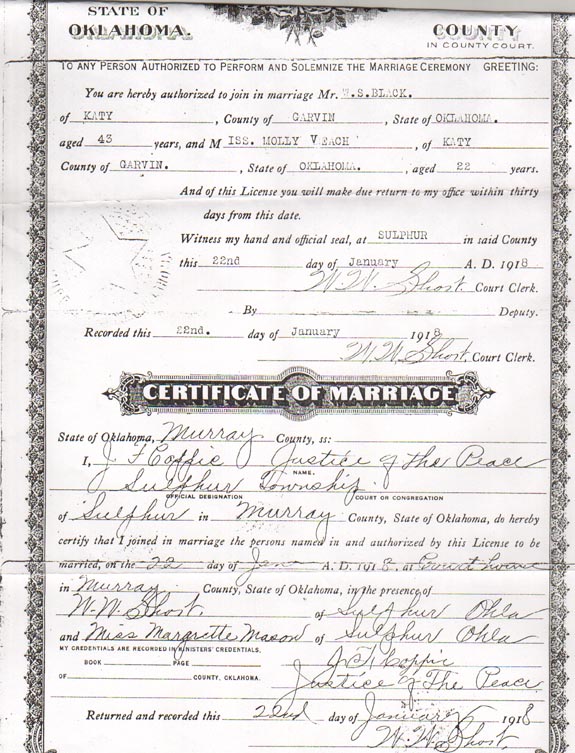 STATE OF
OKLAHOMA.
COUNTY
IN COUNTY COURT.
TO ANY PERSON AUTHORIZED TO PERFORM AND SOLEMNIZE THE MARRIAGE CEREMONY GREETING:
You are hereby authorized to join in marriage Mr. W.S.BLACK.
of KATY, County of GARVIN, State of OKLAHOMA.
aged 43 years, and M ISS. MOLLY VEACH, of KATY
County of GARVIN., State of OKLAHOMA., aged 22 years.
And of this License you will make due return to my office within thirty
days from this date.
Witness my hand and official seal, at SULPHUR in said County
this 22nd day of January A. D. 1918
W. W. Short Court Clerk.
By Deputy.
Recorded this 22nd. day of January 1918
W. W. Short. Court Clerk.
CERTIFICATE OF MARRIAGE
State of Oklahoma, Murray County, ss:
I, J F Coppic Justice of The Peace
NAME.
Sulphur Township
OFFICIAL DESIGNATION COURT OR CONGREGATION
of Sulphur in Murray County, State of Oklahoma, do hereby
certify that I joined in marriage the persons named in and authorized by this License to be
married, on the 22 day of Jan A. D. 1918, at Court house
in Murray County, State of Oklahoma, in the presence of
W. W. Short of Sulphur Okla
and Miss Margrette Mason of Sulphur Okla
MY CREDENTIALS ARE RECORDED IN MINISTERS' CREDENTIALS,
BOOK PAGE
J. F. Coppic
OF COUNTY, OKLAHOMA.
Justice of The Peace
Returned and recorded this 22nd day of January 1918
W. W. Short